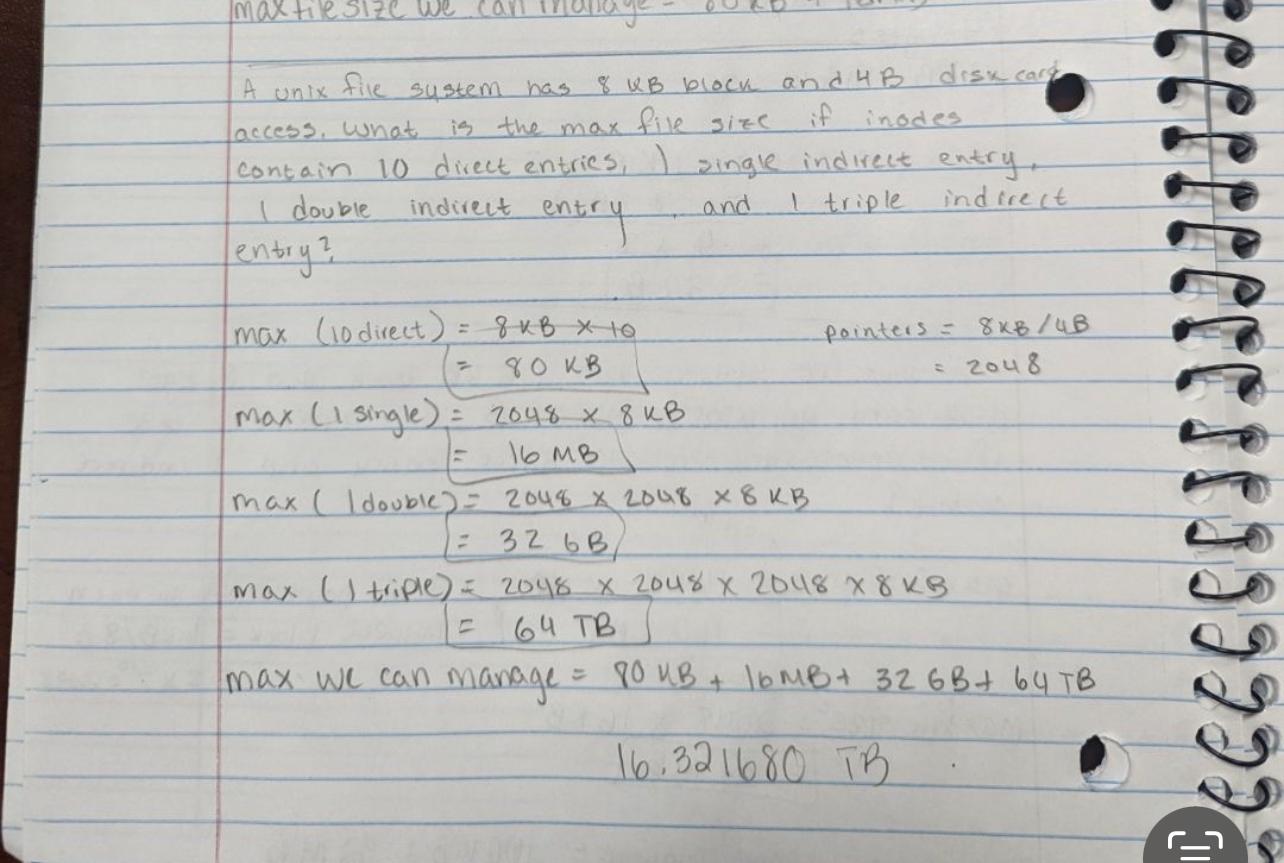 max file size we can manage = 80 KB +
A unix file system has 8 KB block and 4B disk card
access. What is the max file size if inodes
contain 10 direct entries, 1 single indirect entry,
1 double indirect entry, and 1 triple indirect
entry?
max (10 direct) = 8 KB × 10
= 80 KB
pointers = 8KB/4B
= 2048
max (1 single) = 2048 × 8 KB
= 16 MB
max (1 double) = 2048 × 2048 × 8 KB
= 32 GB
max (1 triple) = 2048 × 2048 × 2048 × 8 KB
= 64 TB
max we can manage = 80 KB + 16 MB + 32 GB + 64 TB
16.321680 TB